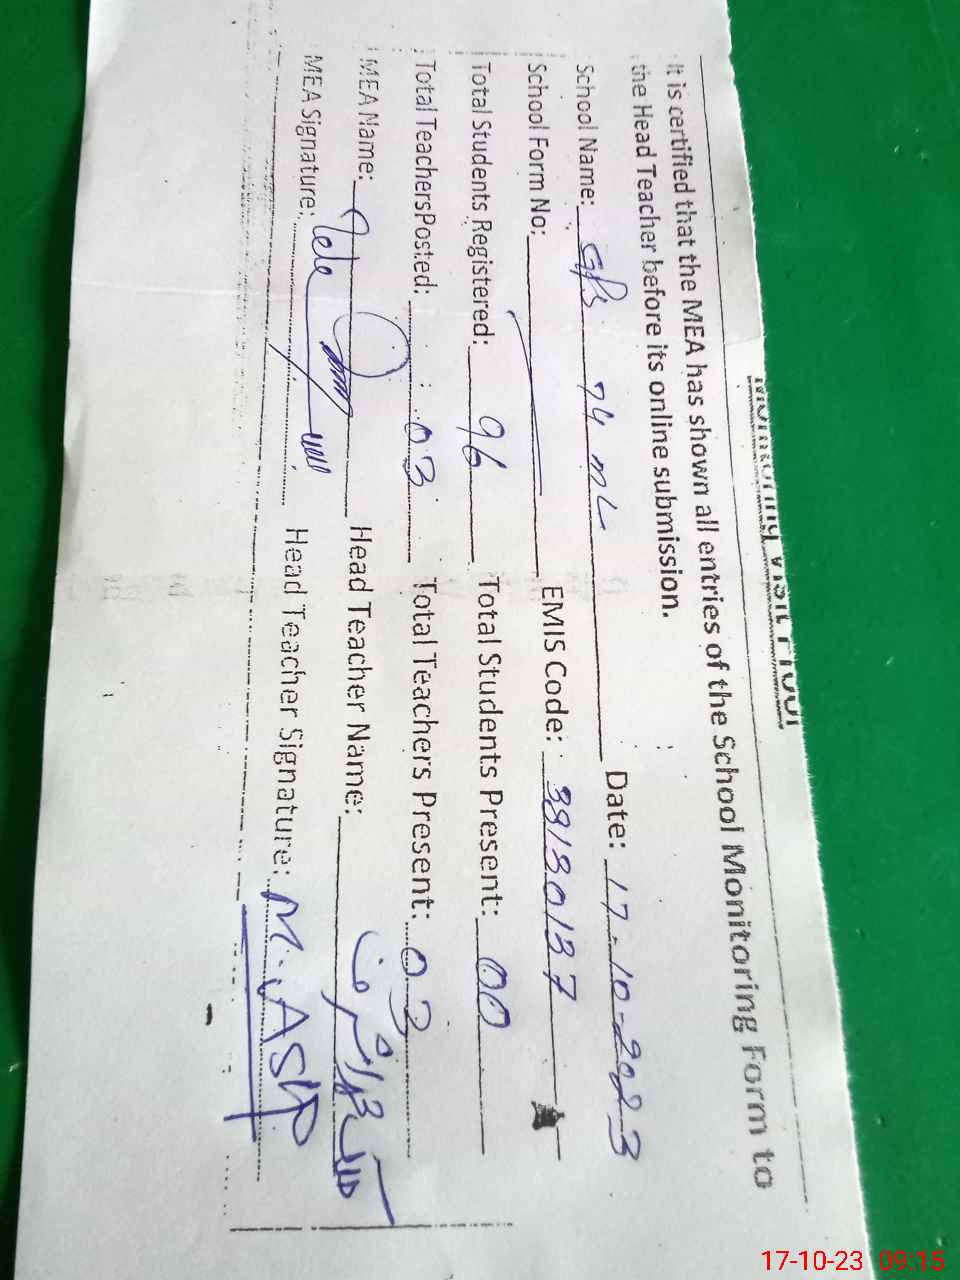 Monitoring Visit Proof
It is certified that the MEA has shown all entries of the School Monitoring Form to
the Head Teacher before its online submission.
School Name: GPS 74 ML Date: 17-10-2023
School Form No: EMIS Code: 38130137
Total Students Registered: 96 Total Students Present: 00
Total TeachersPosted: 03 Total Teachers Present: 03
MEA Name: Head Teacher Name: محمد اشرف
MEA Signature: Head Teacher Signature: M. ASHR
17-10-23 09:15